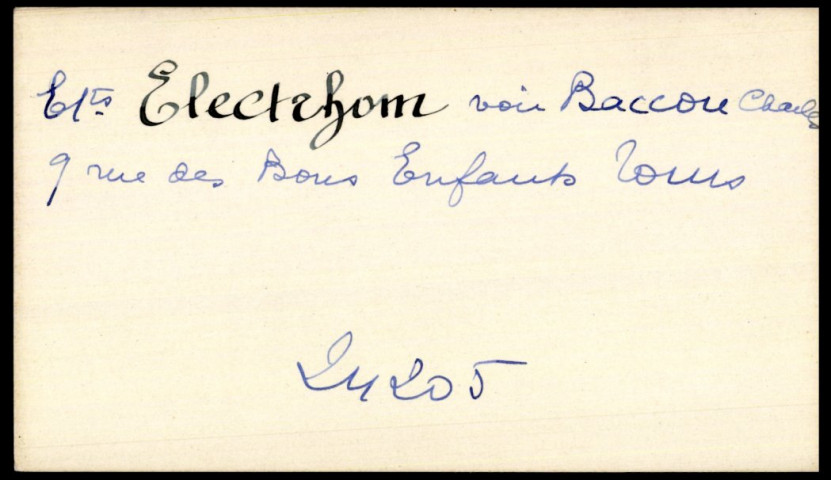 Ets Electrhom voir Baccou Charles
9 rue des Bons Enfants Tours
24205